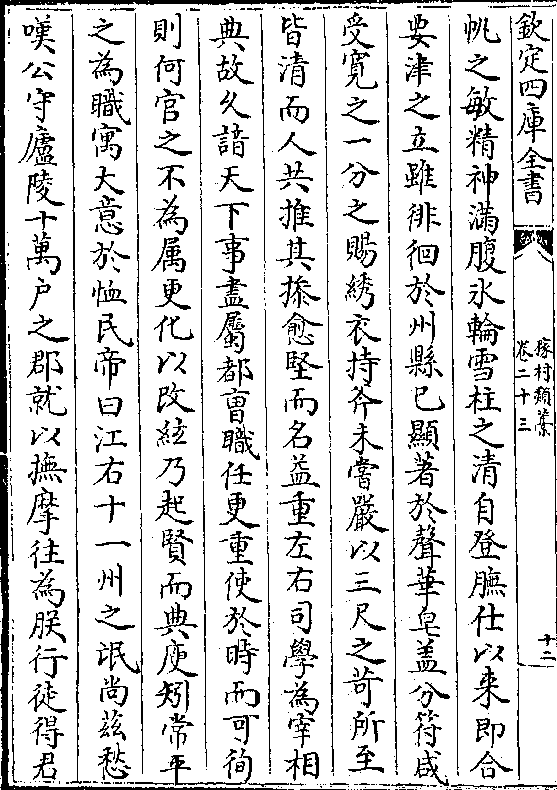 欽定四庫全書
帆之敏精神滿腹氷輪雪柱之清自登膴仕以來即合
要津之立雖徘徊於州縣已顯著於聲華皂盖分符咸
受寛之一分之賜綉衣持斧未嘗嚴以三尺之苛所至
皆清而人共推其操愈堅而名益重左右司學為宰相
典故久諳天下事盡屬都曺職任更重使於時而可徇
則何官之不為属更化以改絃乃起賢而典庾矧常平
之為職寓大意於恤民帝曰江右十一州之氓尚兹愁
嘆公守廬陵十萬户之郡就以撫摩往為朕行徒得君
稼村類藁
卷二十三
十二